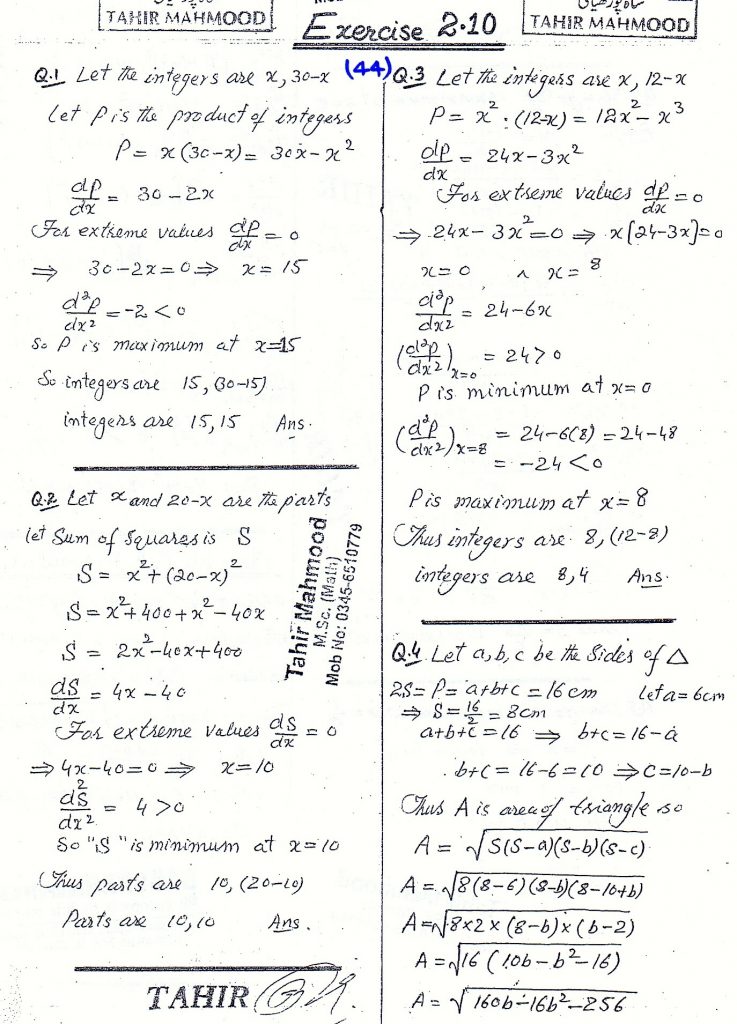 TAHIR MAHMOOD
Exercise 2.10
TAHIR MAHMOOD
(44)
Q.1 Let the integers are x, 30-x
Let P is the product of integers
P = x(30-x) = 30x - x²
dp/dx = 30 - 2x
For extreme values dp/dx = 0
⇒ 30-2x=0 ⇒ x = 15
d²p/dx² = -2 < 0
So P is maximum at x=15
So integers are 15, (30-15)
integers are 15, 15 Ans.
Q.2 Let x and 20-x are the parts
let Sum of Squares is S
S = x² + (20-x)²
S = x² + 400 + x² - 40x
S = 2x² - 40x + 400
ds/dx = 4x - 40
For extreme values ds/dx = 0
⇒ 4x-40=0 ⇒ x=10
ds²/dx² = 4 > 0
So "S" is minimum at x=10
Thus parts are 10, (20-10)
Parts are 10, 10 Ans.
TAHIR
Tahir Mahmood
M.Sc. (Math)
Mob No: 0345-6510779
Q.3 Let the integers are x, 12-x
P = x² · (12-x) = 12x² - x³
dp/dx = 24x - 3x²
For extreme values dp/dx = 0
⇒ 24x - 3x² = 0 ⇒ x[24-3x]=0
x=0 ∧ x = 8
d²p/dx² = 24-6x
(d²p/dx²)x=0 = 24 > 0
P is minimum at x=0
(d²p/dx²)x=8 = 24-6(8) = 24-48
= -24 < 0
P is maximum at x=8
Thus integers are 8, (12-8)
integers are 8, 4 Ans.
Q.4 Let a, b, c be the Sides of △
2S = P = a+b+c = 16 cm let a = 6cm
⇒ S = 16/2 = 8cm
a+b+c = 16 ⇒ b+c = 16-a
b+c = 16-6 = 10 ⇒ c = 10-b
Thus A is area of triangle so
A = √S(S-a)(S-b)(S-c)
A = √8(8-6)(8-b)(8-10+b)
A = √8×2×(8-b)×(b-2)
A = √16(10b-b²-16)
A = √160b-16b²-256